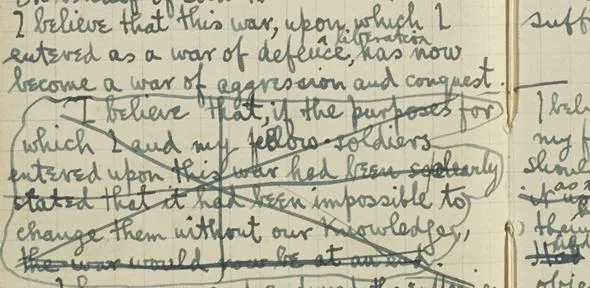 I believe that this war, upon which I
entered as a war of defence, & liberation has now
become a war of aggression and conquest.
I believe that, if the purposes for
which I and my fellow-soldiers
entered upon this war had been so clearly
stated that it had been impossible to
change them without our knowledge,
the war would now be at an end.
suff
I beli
my f
shoul
as